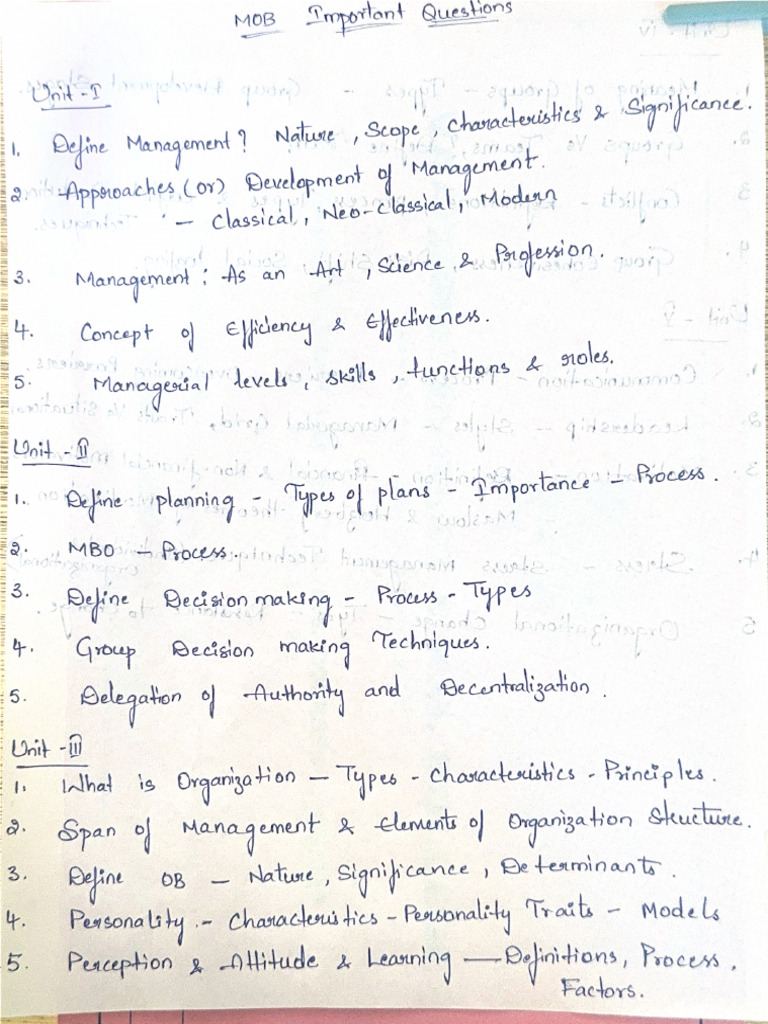 MOB Important Questions
Unit - I
1. Define Management? Nature, Scope, characteristics & Significance.
2. Approaches (or) Development of Management.
- Classical, Neo-Classical, Modern
3. Management: As an Art, Science & Profession.
4. Concept of Efficiency & Effectiveness.
5. Managerial levels, skills, functions & roles.
Unit - II
1. Define planning - Types of plans - Importance - Process.
2. MBO - Process.
3. Define Decision making - Process - Types
4. Group Decision making Techniques.
5. Delegation of Authority and Decentralization.
Unit - III
1. What is Organization - Types - characteristics - Principles.
2. Span of Management & Elements of Organization Structure.
3. Define OB - Nature, Significance, Determinants.
4. Personality - characteristics - Personality Traits - Models
5. Perception & Attitude & Learning - Definitions, Process,
Factors.